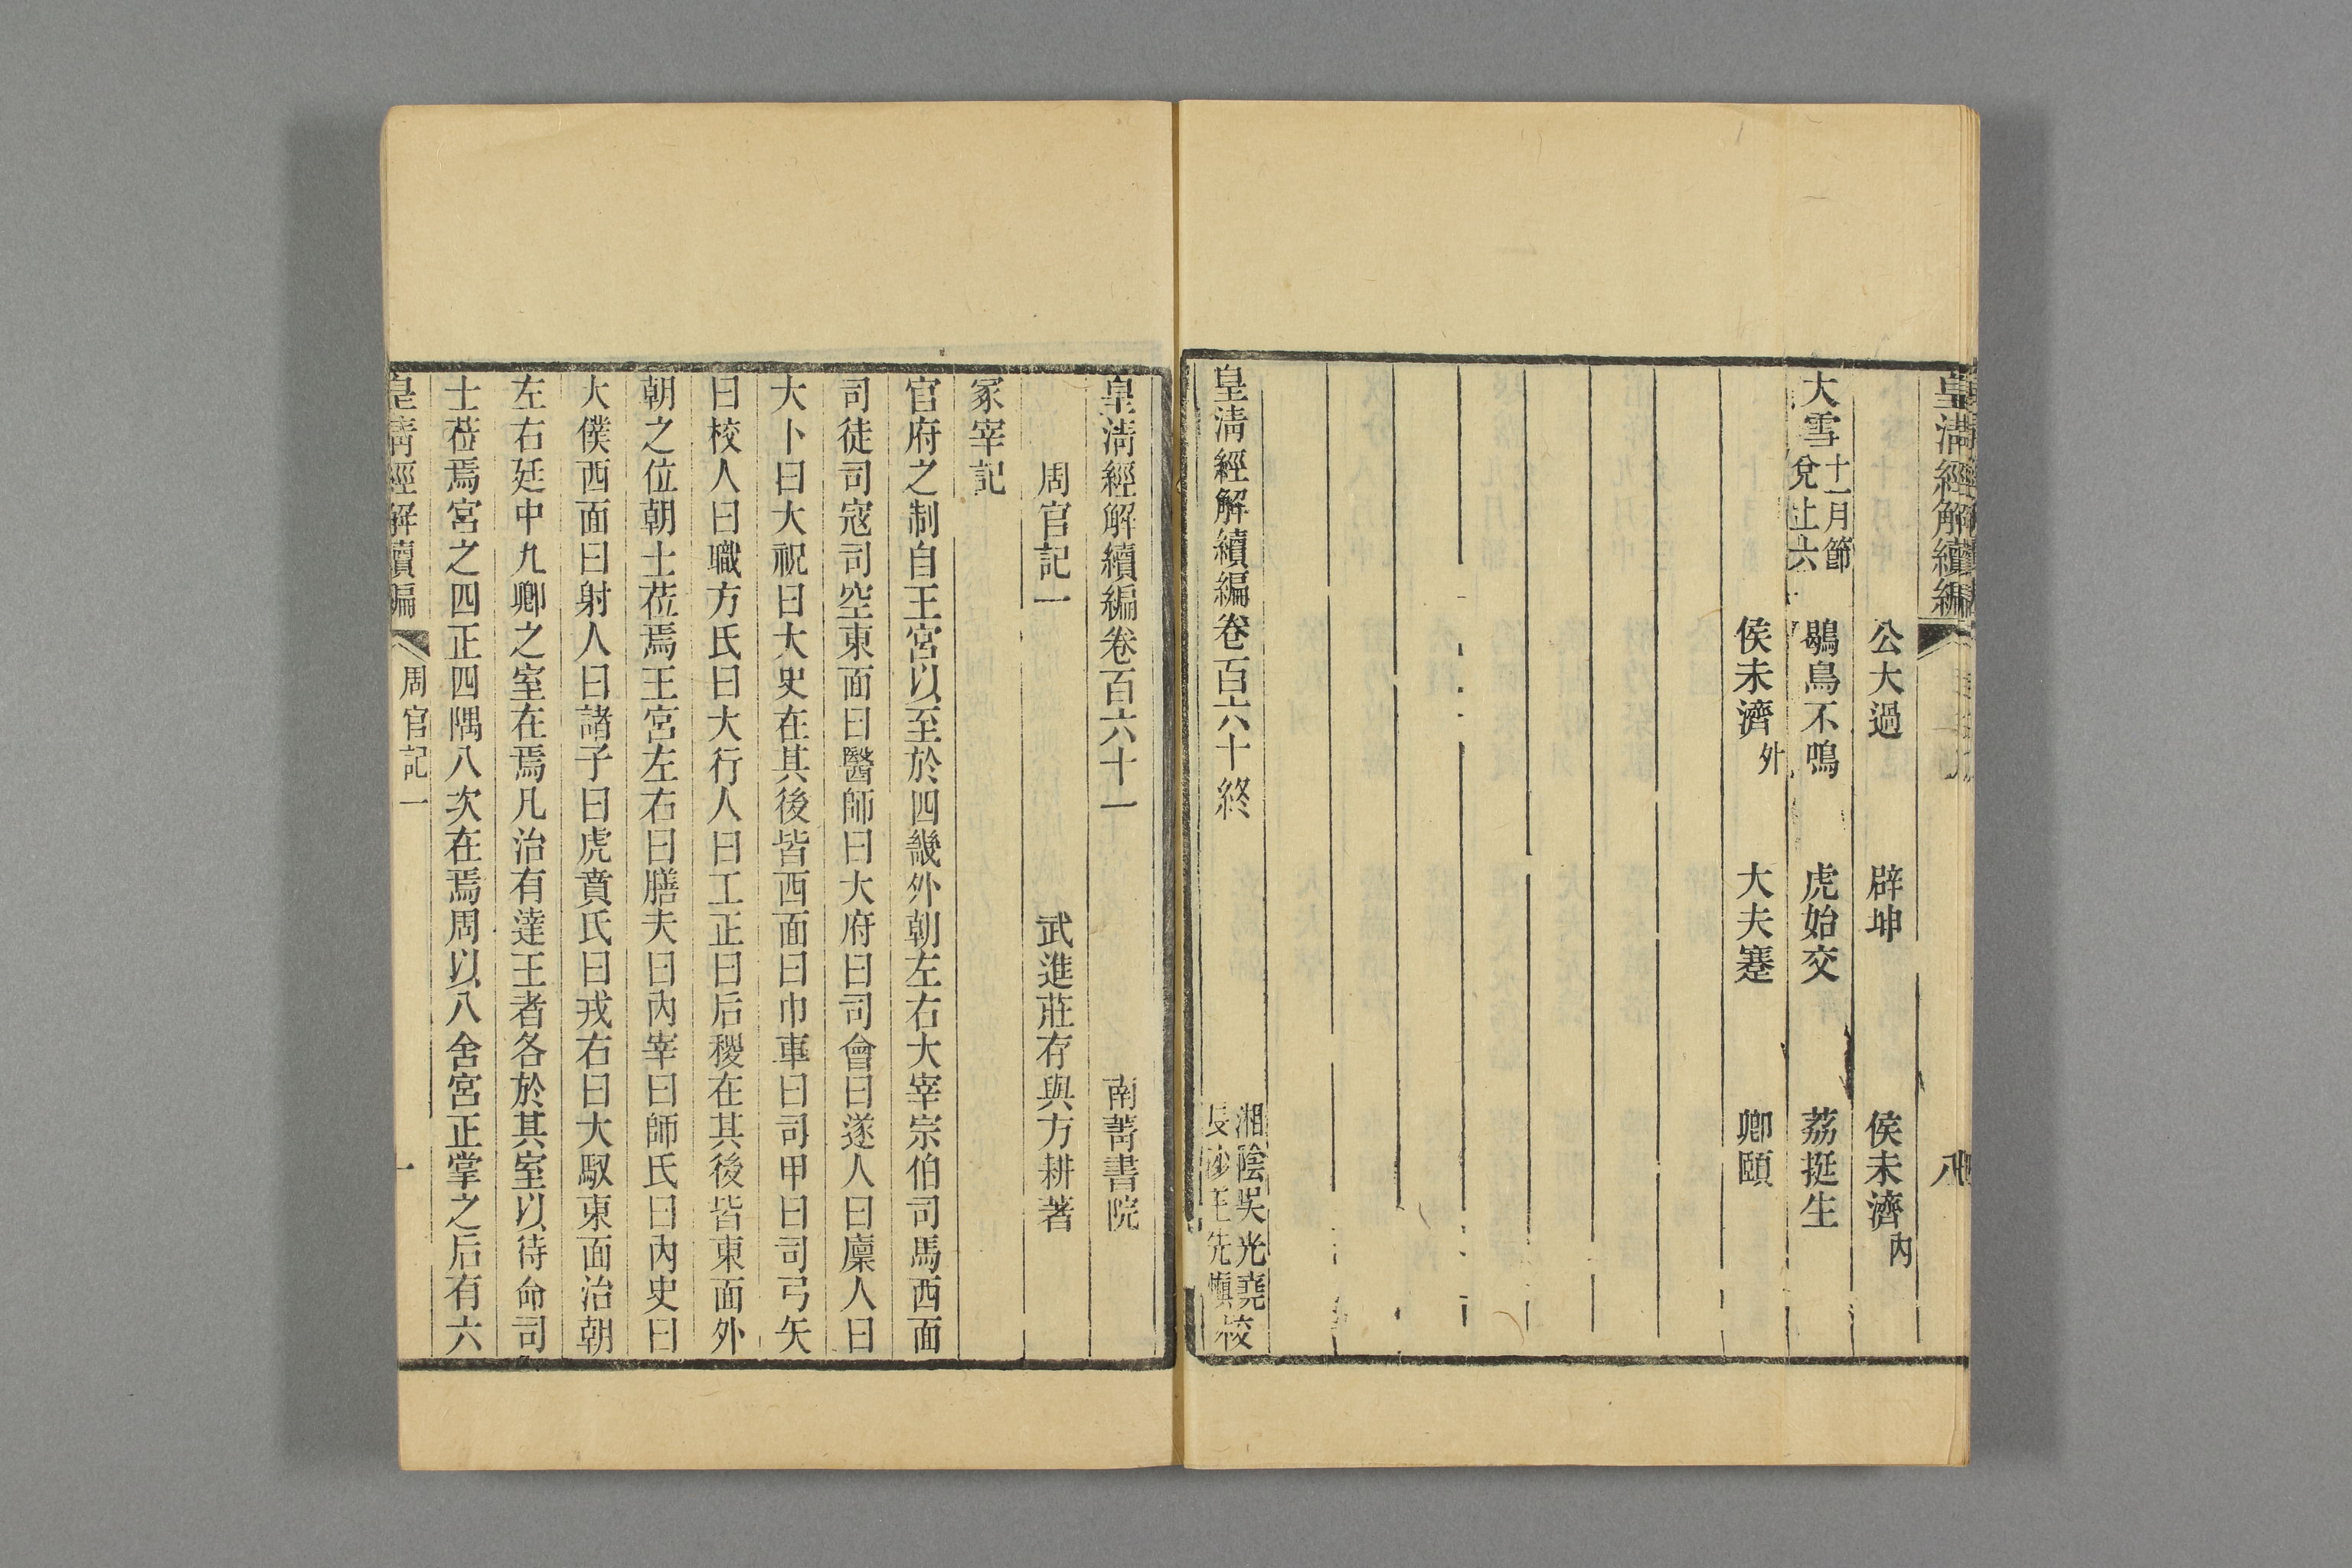 皇淸經解續編
八
公大過　辟坤　侯未濟內
大雪十一月節兌上六　鶡鳥不鳴　虎始交　荔挺生
侯未濟外　大夫蹇　卿頤
皇淸經解續編卷百六十終
湘陰吳光堯校
長沙王先愼校
皇淸經解續編卷百六十一　南菁書院
周官記一　武進莊存與方耕著
冢宰記
官府之制自王宮以至於四畿外朝左右大宰宗伯司馬西面
司徒司寇司空東面曰醫師曰大府曰司會曰遂人曰廩人曰
大卜曰大祝曰大史在其後皆西面曰巾車曰司甲曰司弓矢
曰校人曰職方氏曰大行人曰工正曰后稷在其後皆東面外
朝之位朝士莅焉王宮左右曰膳夫曰內宰曰師氏曰內史曰
大僕西面曰射人曰諸子曰虎賁氏曰戎右曰大馭東面治朝
左右廷中九卿之室在焉凡治有達王者各於其室以待命司
士莅焉宮之四正四隅八次在焉周以八舍宮正掌之后有六
皇淸經解續編
周官記一
一